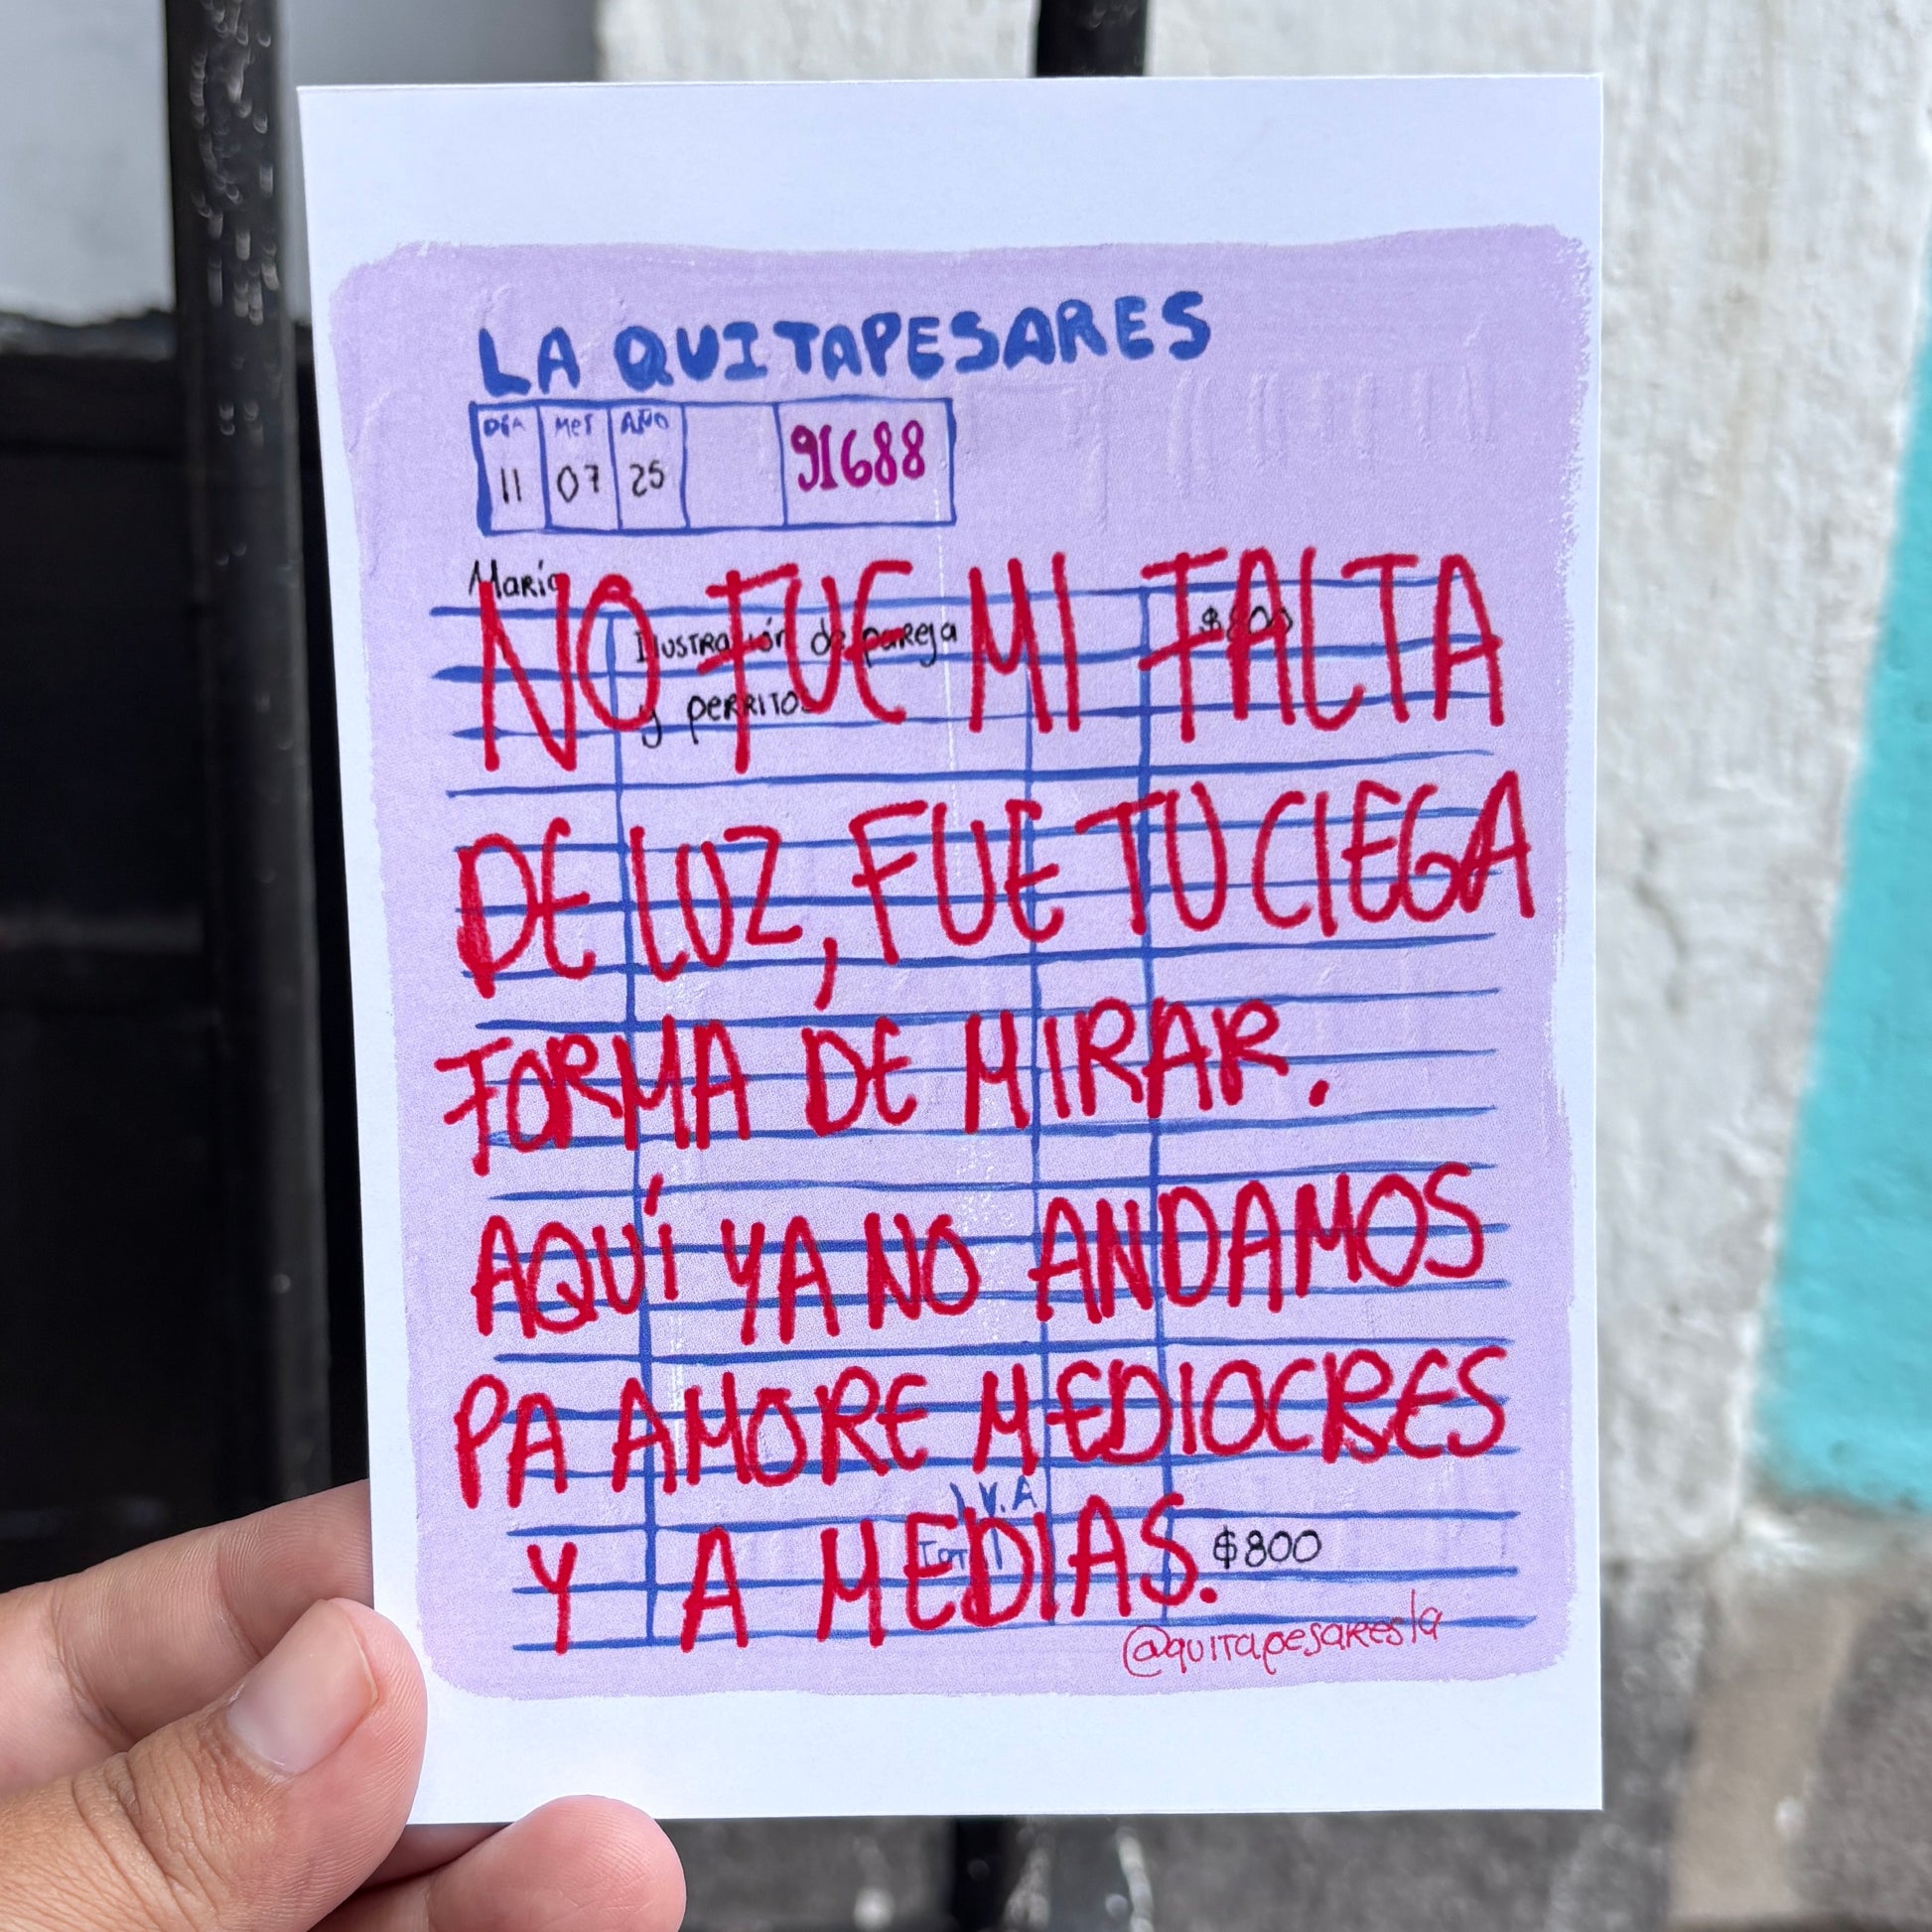 LA QUITAPESARES
DÍA MES AÑO
11 07 25 91688
María
NO FUE MI FALTA
Ilustración de pareja $800
y perrito
DE LUZ, FUE TU CIEGA
FORMA DE MIRAR.
AQUÍ YA NO ANDAMOS
PA AMORE MEDIOCRES
I.V.A
Y A MEDIAS.
Total $800
@quitapesaresla